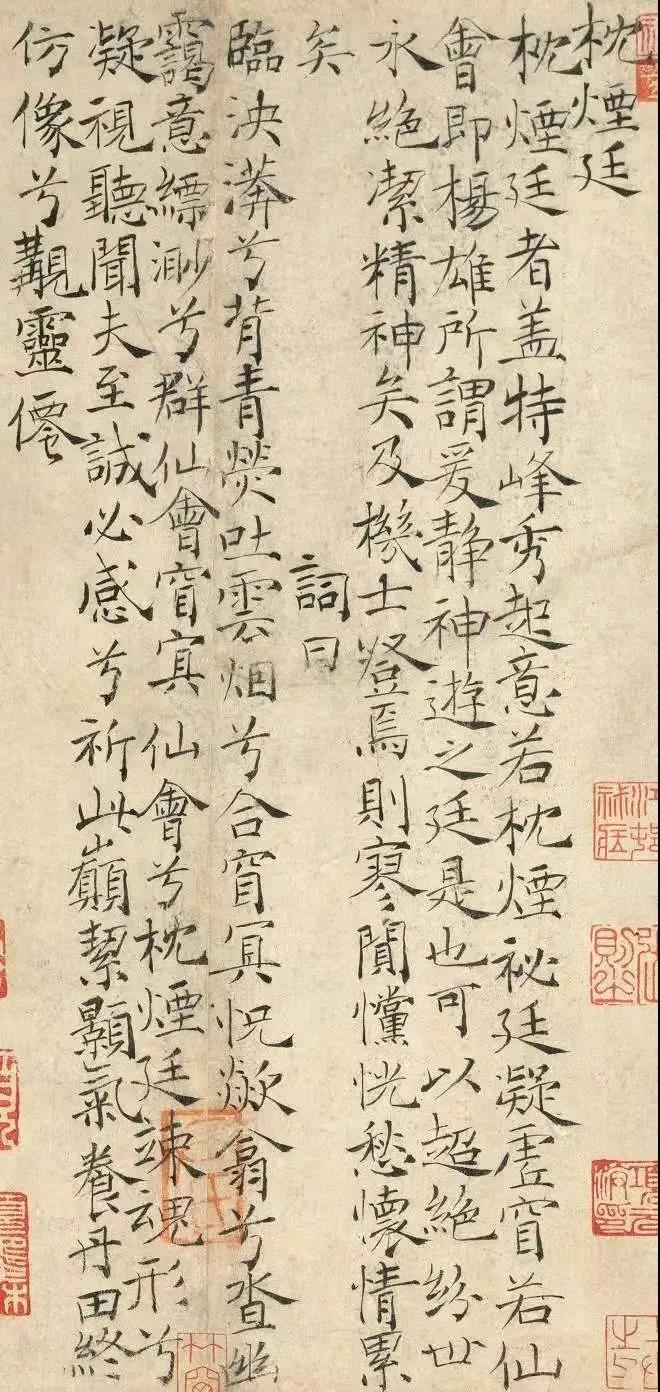 枕煙廷
枕煙廷者盖特峰秀起意若枕煙祕廷凝虛窅若仙
會即楊雄所謂爰静神遊之廷是也可以超絕紛世
永絕潔精神矣及機士登焉則寥闃戃恍愁懷情累
矣 詞曰
臨泱漭兮背青熒吐雲烟兮合窅冥怳欻翕兮沓幽
靄意縹渺兮群仙會窅冥仙會兮枕煙廷竦魂形兮
凝視聽聞夫至誠必感兮祈此巔絜顥氣養丹田終
仿像兮覯靈僊